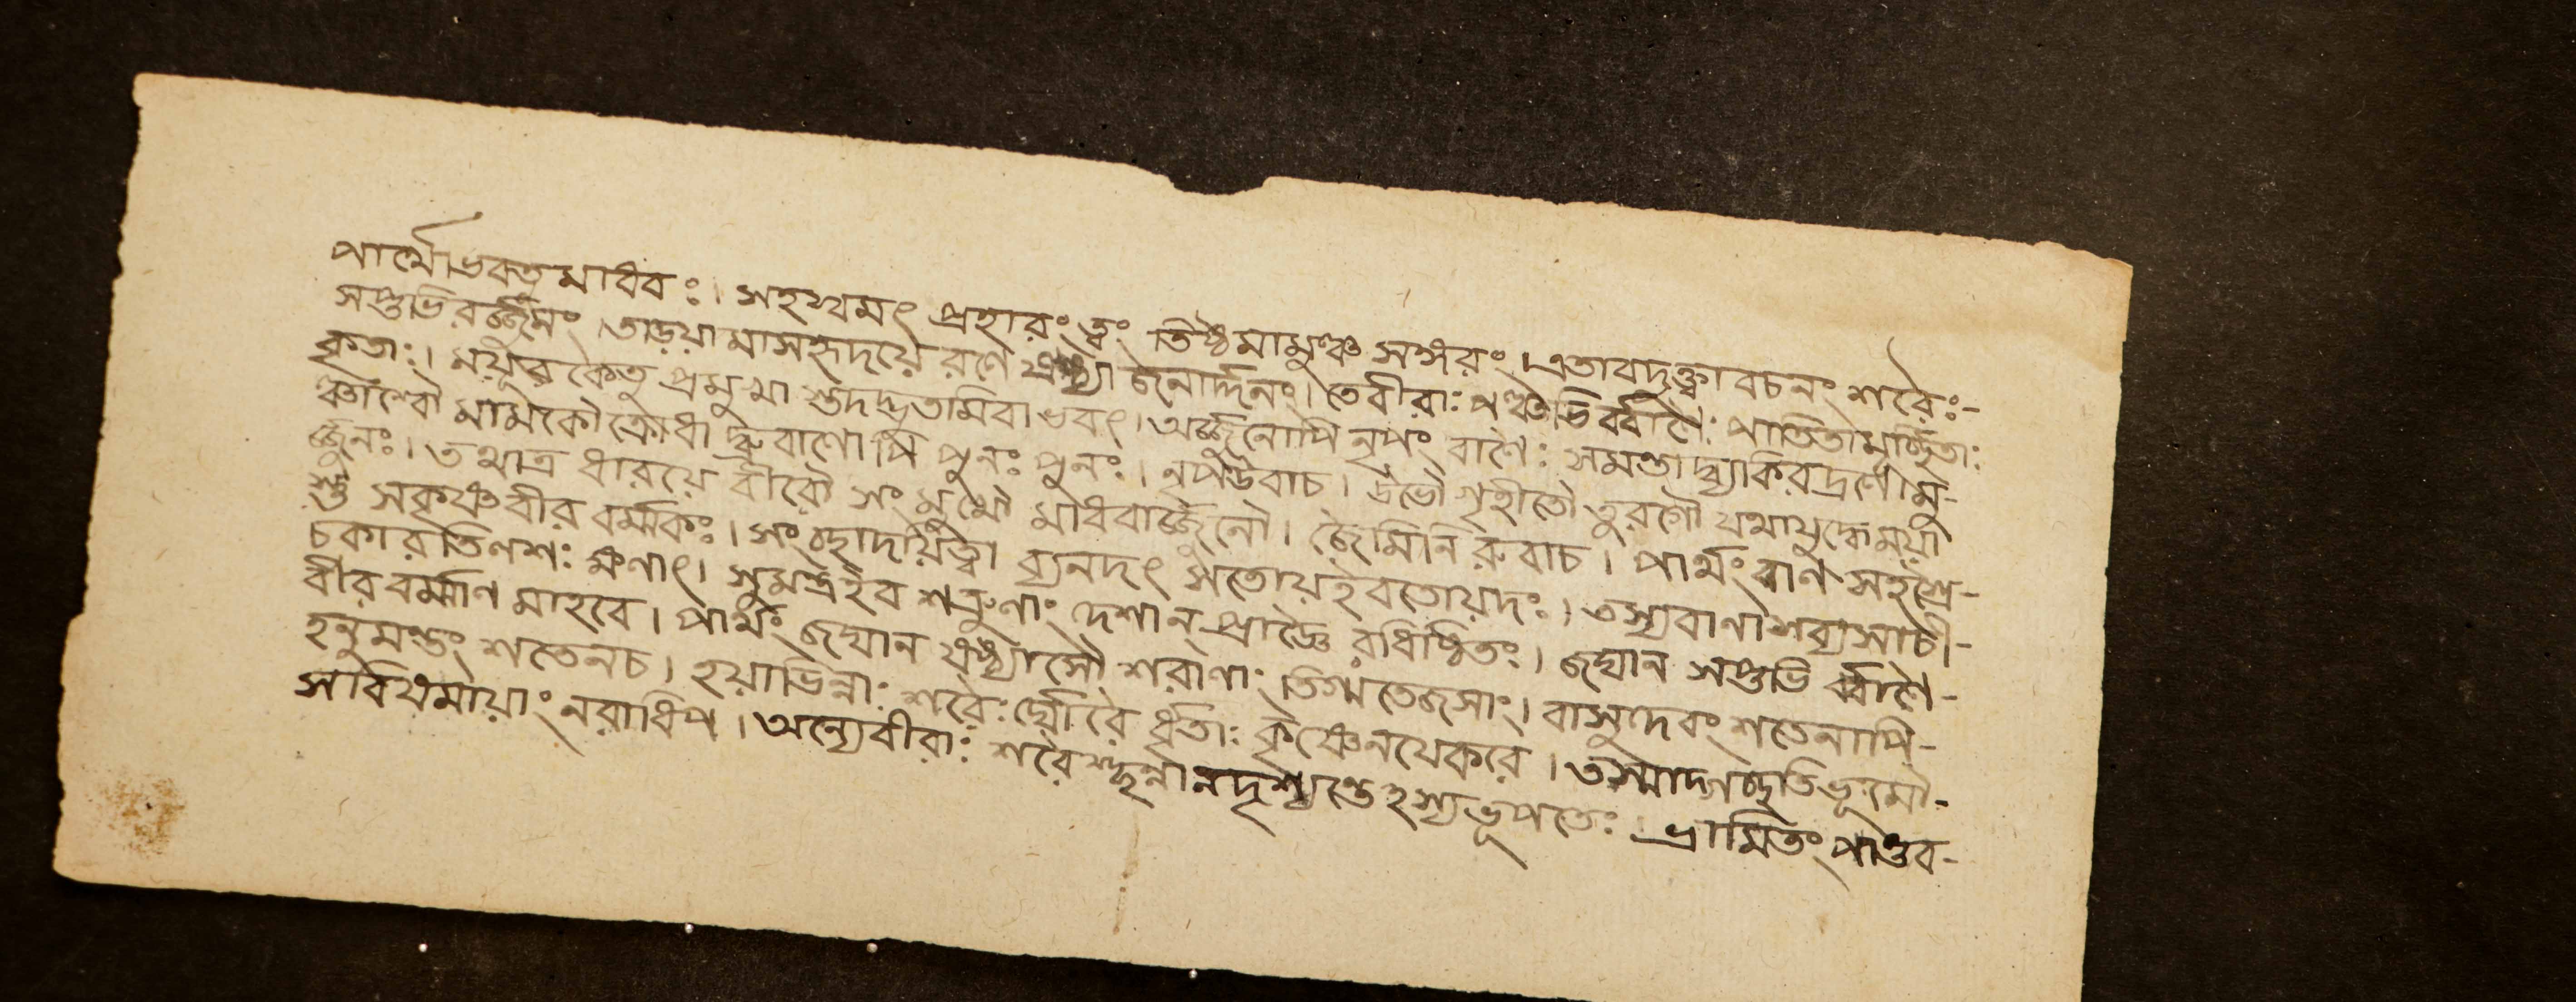 পার্থোভবতু মাধবঃ। সহস্বমৎ প্রহারং ত্বং তিষ্ঠমামুঞ্চ সঙ্গরং। এতাবদুক্ত্বা বচনং শরৈঃ-
সপ্তভিরর্জ্জুনং। তাড়য়ামাসহৃদয়ে রণে জনার্দ্দনং। তেবীরাঃ পঞ্চভির্ব্বাণৈঃ পাতিতামূর্চ্ছিতাঃ
কৃতাঃ। ময়ূরকেতু প্রমুখা স্তদদ্ভুতমিবাভবৎ। অর্জ্জুনোপি নৃপং বাণৈঃ সমন্তাদ্ব্যাকিরদ্রণে। মু-
ঞ্চাশ্বৌ মামকৌক্রোধা দ্ধ্রুবাণোপি পুনঃ পুনঃ। নৃপউবাচ। উভৌ গৃহীতৌ তুরগৌ যথাযুদ্ধেময়া
র্জ্জুনঃ। তথাত্র ধারয়ে বীরৌ সংমুখৌ মাধবার্জ্জুনৌ। জৈমিনিরুবাচ। পার্থং বাণ সহস্রে-
স্তু সকৃষ্ণং বীর বর্ম্মকঃ। সংচ্ছাদয়িত্বা ব্যনদৎ সতোয়ইবতোয়দঃ। তস্যবাণাশব্যসাচী-
চকারতিলশঃ ক্ষণাৎ। সুমন্ত্রইব শত্রুণাং দেশান্ প্রাজ্ঞৈ রধিষ্ঠিতঃ। জঘান সপ্তভি র্ব্বাণৈ-
বীরবর্ম্মাণ মাহবে। পার্থং জঘান ষষ্ট্যাসৌ শরাণাং তিগ্মতেজসাং। বাসুদেবং শতেনাপি-
হনুমন্তং শতেনচ। হয়াভিন্নাঃ শরৈঃ র্ঘোরৈ র্ধৃতাঃ কৃষ্ণেনযেকরে। তস্মাদ্গচ্ছতিভূমৌ-
সবিথমায়াং নরাধিপ। অন্যেবীরাঃ শরৈশ্ছন্নানদৃশ্যন্তেহস্যভূপতেঃ। ভ্রামিতং পাণ্ডব-